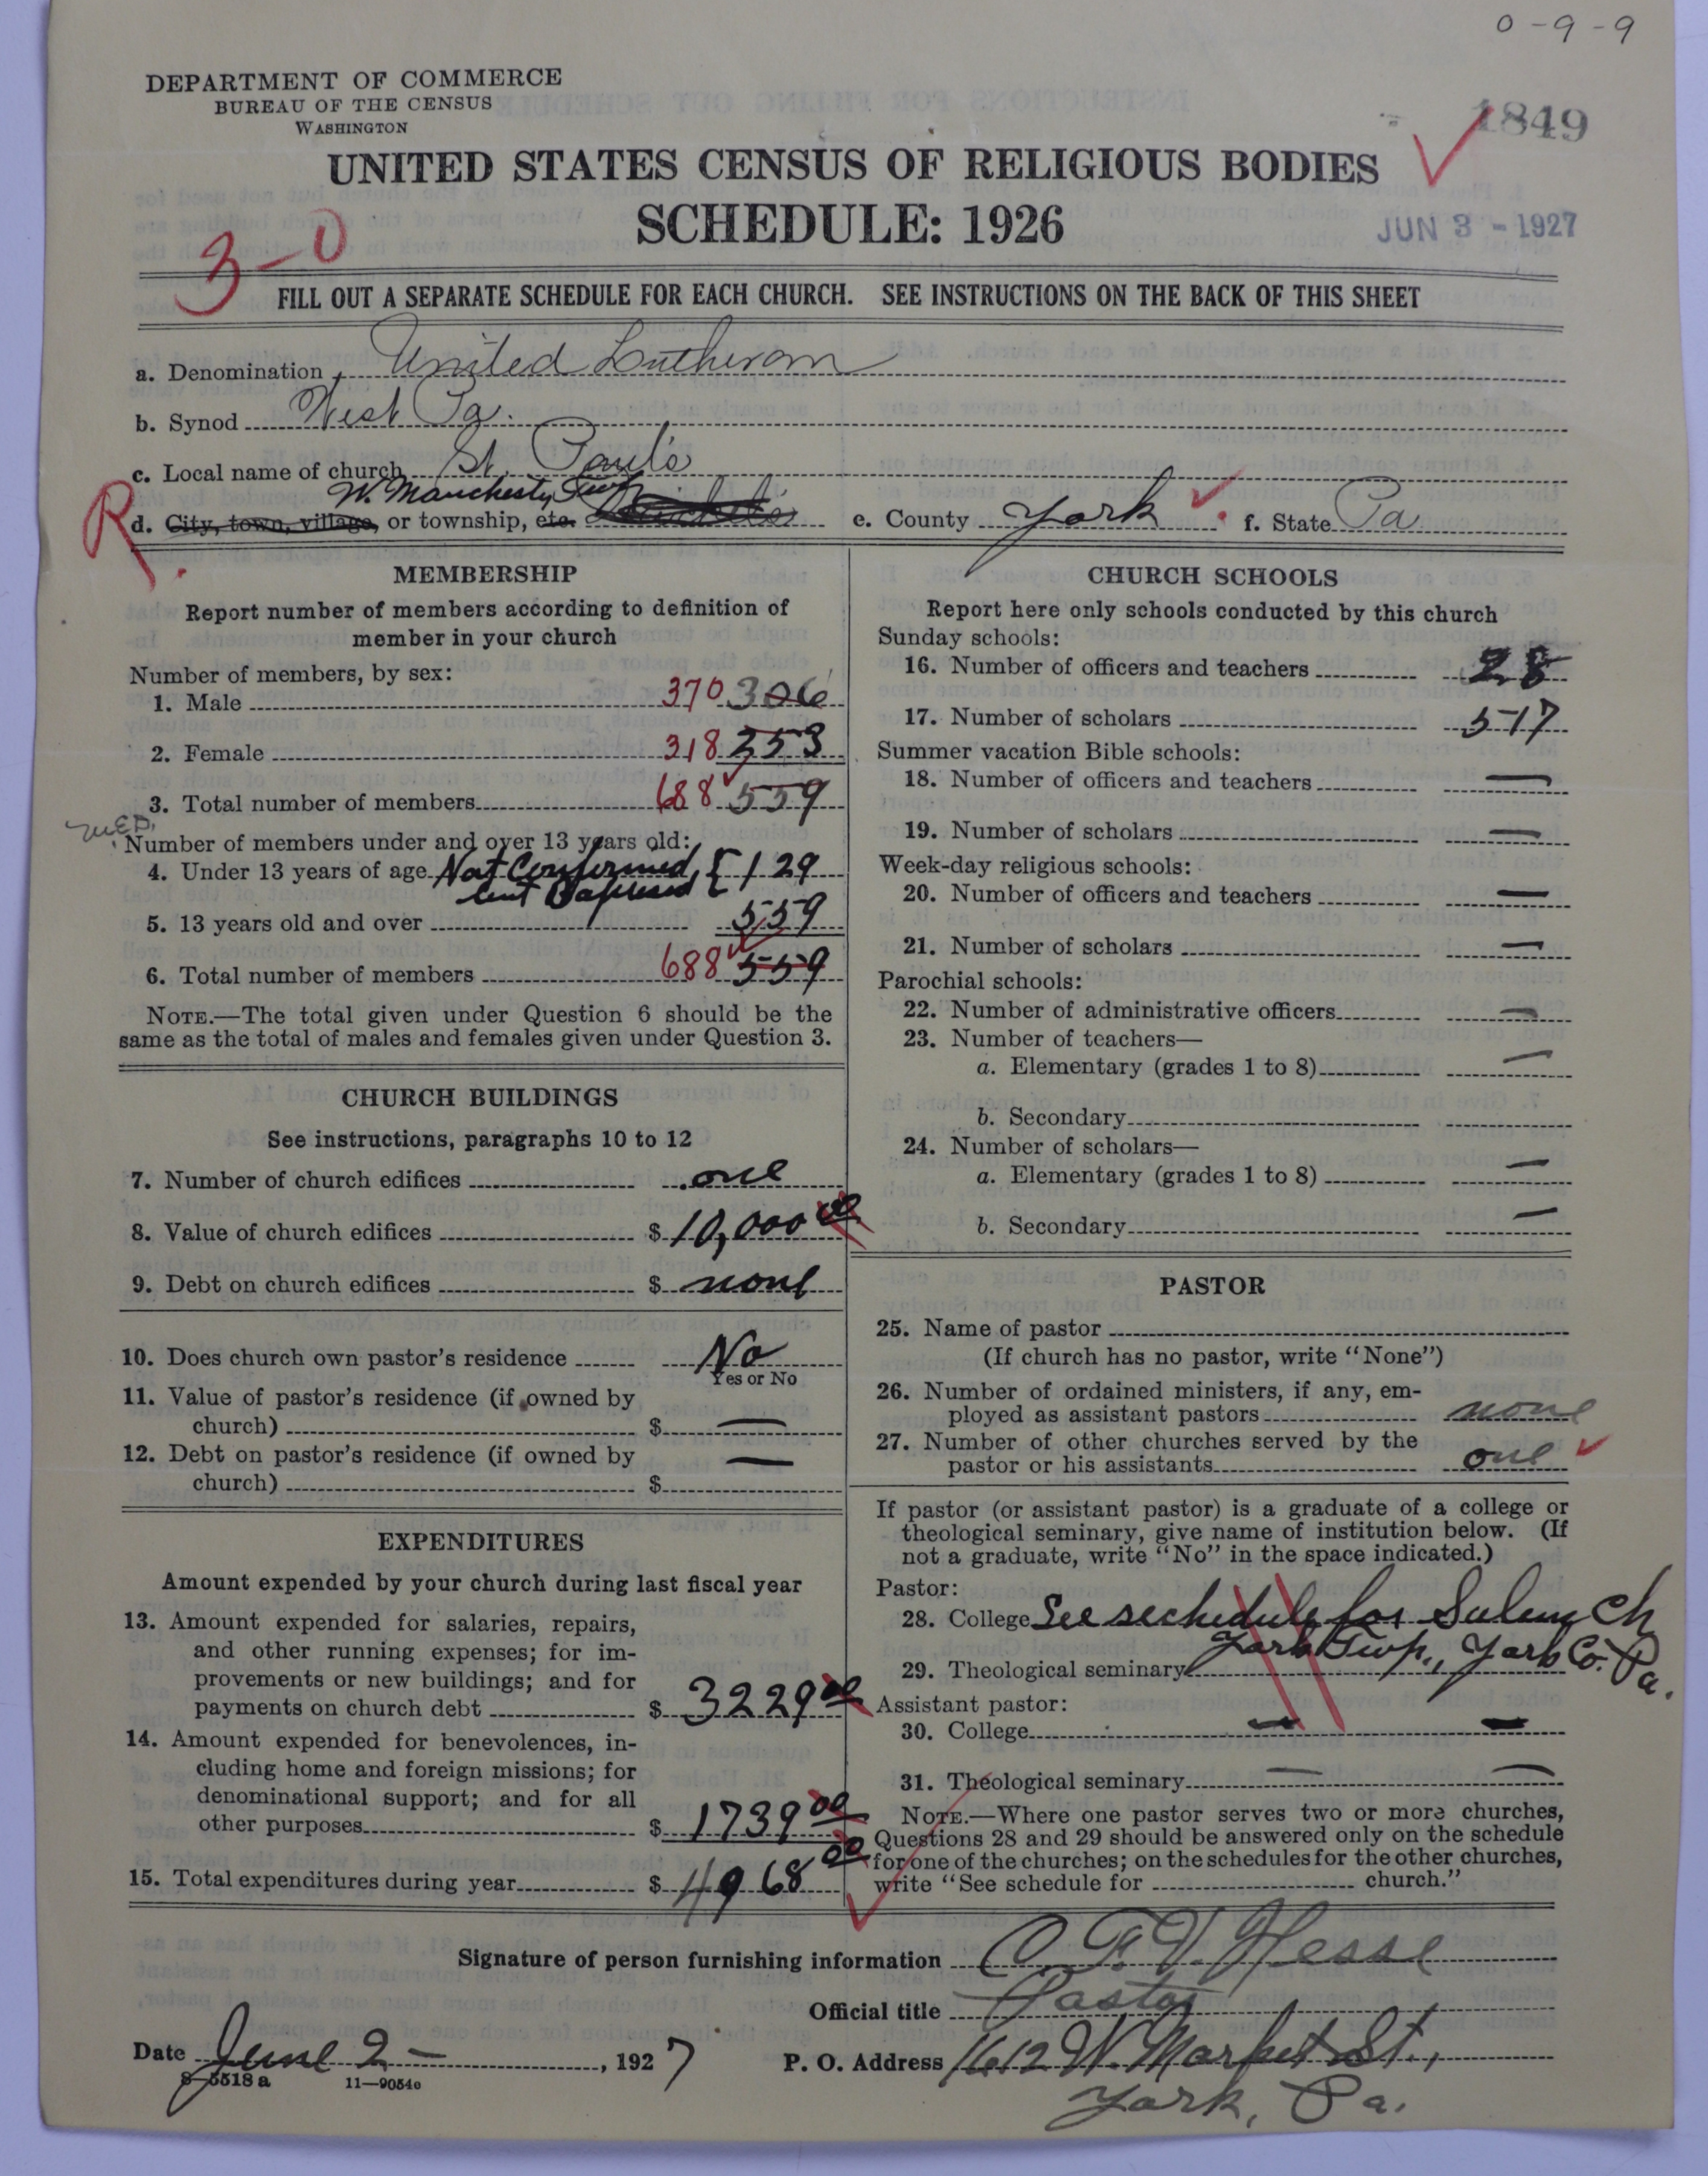 0-9-9
DEPARTMENT OF COMMERCE
BUREAU OF THE CENSUS
WASHINGTON
1849
UNITED STATES CENSUS OF RELIGIOUS BODIES
SCHEDULE: 1926
JUN 3 - 1927
3-0
FILL OUT A SEPARATE SCHEDULE FOR EACH CHURCH. SEE INSTRUCTIONS ON THE BACK OF THIS SHEET
a. Denomination United Lutheran
b. Synod West Pa.
c. Local name of church St. Paul's
W. Manchester Twp
R. d. City, town, village, or township, etc. e. County York f. State Pa
MEMBERSHIP
Report number of members according to definition of
member in your church
Number of members, by sex:
1. Male 370 306
2. Female 318 253
3. Total number of members 688 559
Number of members under and over 13 years old:
4. Under 13 years of age Not Confirmed { 129
but Baptised
5. 13 years old and over 559
6. Total number of members 688 559
NOTE.—The total given under Question 6 should be the
same as the total of males and females given under Question 3.
CHURCH BUILDINGS
See instructions, paragraphs 10 to 12
7. Number of church edifices one
8. Value of church edifices $ 10,000 00
9. Debt on church edifices $ none
10. Does church own pastor's residence No
Yes or No
11. Value of pastor's residence (if owned by
church) $ —
12. Debt on pastor's residence (if owned by —
church) $
EXPENDITURES
Amount expended by your church during last fiscal year
13. Amount expended for salaries, repairs,
and other running expenses; for im-
provements or new buildings; and for
payments on church debt $ 3229 00
14. Amount expended for benevolences, in-
cluding home and foreign missions; for
denominational support; and for all
other purposes $ 1739 00
15. Total expenditures during year $ 4968 00
CHURCH SCHOOLS
Report here only schools conducted by this church
Sunday schools:
16. Number of officers and teachers 28
17. Number of scholars 517
Summer vacation Bible schools:
18. Number of officers and teachers —
19. Number of scholars —
Week-day religious schools:
20. Number of officers and teachers —
21. Number of scholars —
Parochial schools:
22. Number of administrative officers —
23. Number of teachers—
a. Elementary (grades 1 to 8) —
b. Secondary
24. Number of scholars—
a. Elementary (grades 1 to 8) —
b. Secondary —
PASTOR
25. Name of pastor
(If church has no pastor, write "None")
26. Number of ordained ministers, if any, em-
ployed as assistant pastors none
27. Number of other churches served by the
pastor or his assistants one
If pastor (or assistant pastor) is a graduate of a college or
theological seminary, give name of institution below. (If
not a graduate, write "No" in the space indicated.)
Pastor:
28. College See sechedule for Salem Ch
York Twp., York Co. Pa.
29. Theological seminary
Assistant pastor:
30. College — —
31. Theological seminary — —
NOTE.—Where one pastor serves two or more churches,
Questions 28 and 29 should be answered only on the schedule
for one of the churches; on the schedules for the other churches,
write "See schedule for church."
Signature of person furnishing information O. F. V. Hesse
Official title Pastor
Date June 2 — , 1927 P. O. Address 1612 W. Market St.,
York, Pa.
8-5518 a 11—9054c